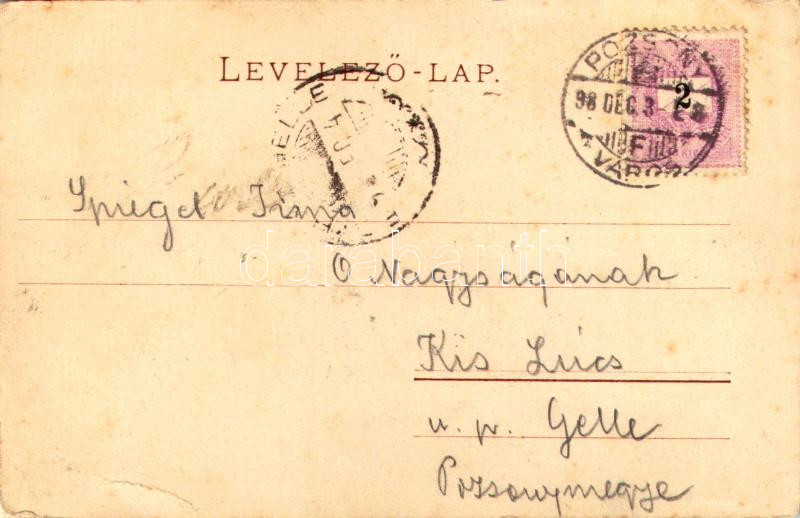 LEVELEZŐ-LAP.
POZSONY
98 DEC. 3
2
F
VÁROS
GELLE
Spiegel Irma
Ő Nagyságának
Kis Lúcs
u. p. Gelle
Pozsonymegye
darabanth